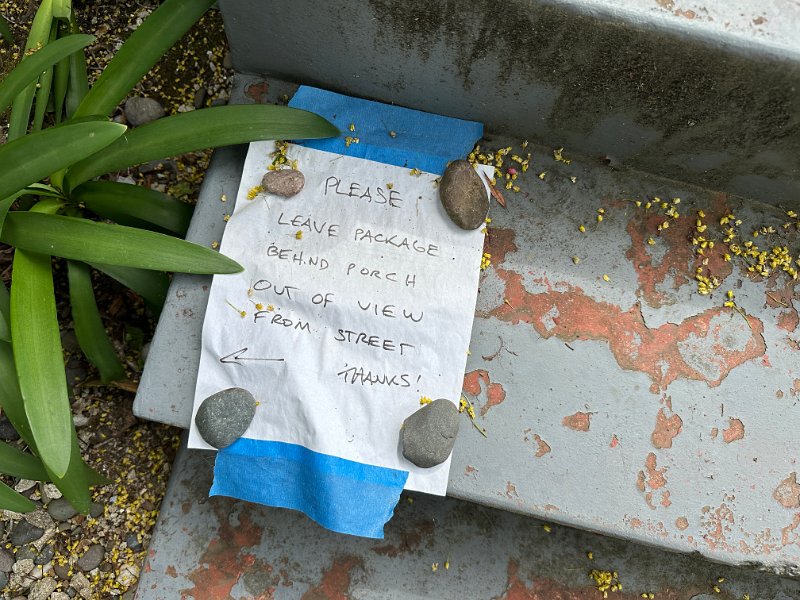 PLEASE
LEAVE PACKAGE
BEHIND PORCH
OUT OF VIEW
FROM STREET
THANKS!